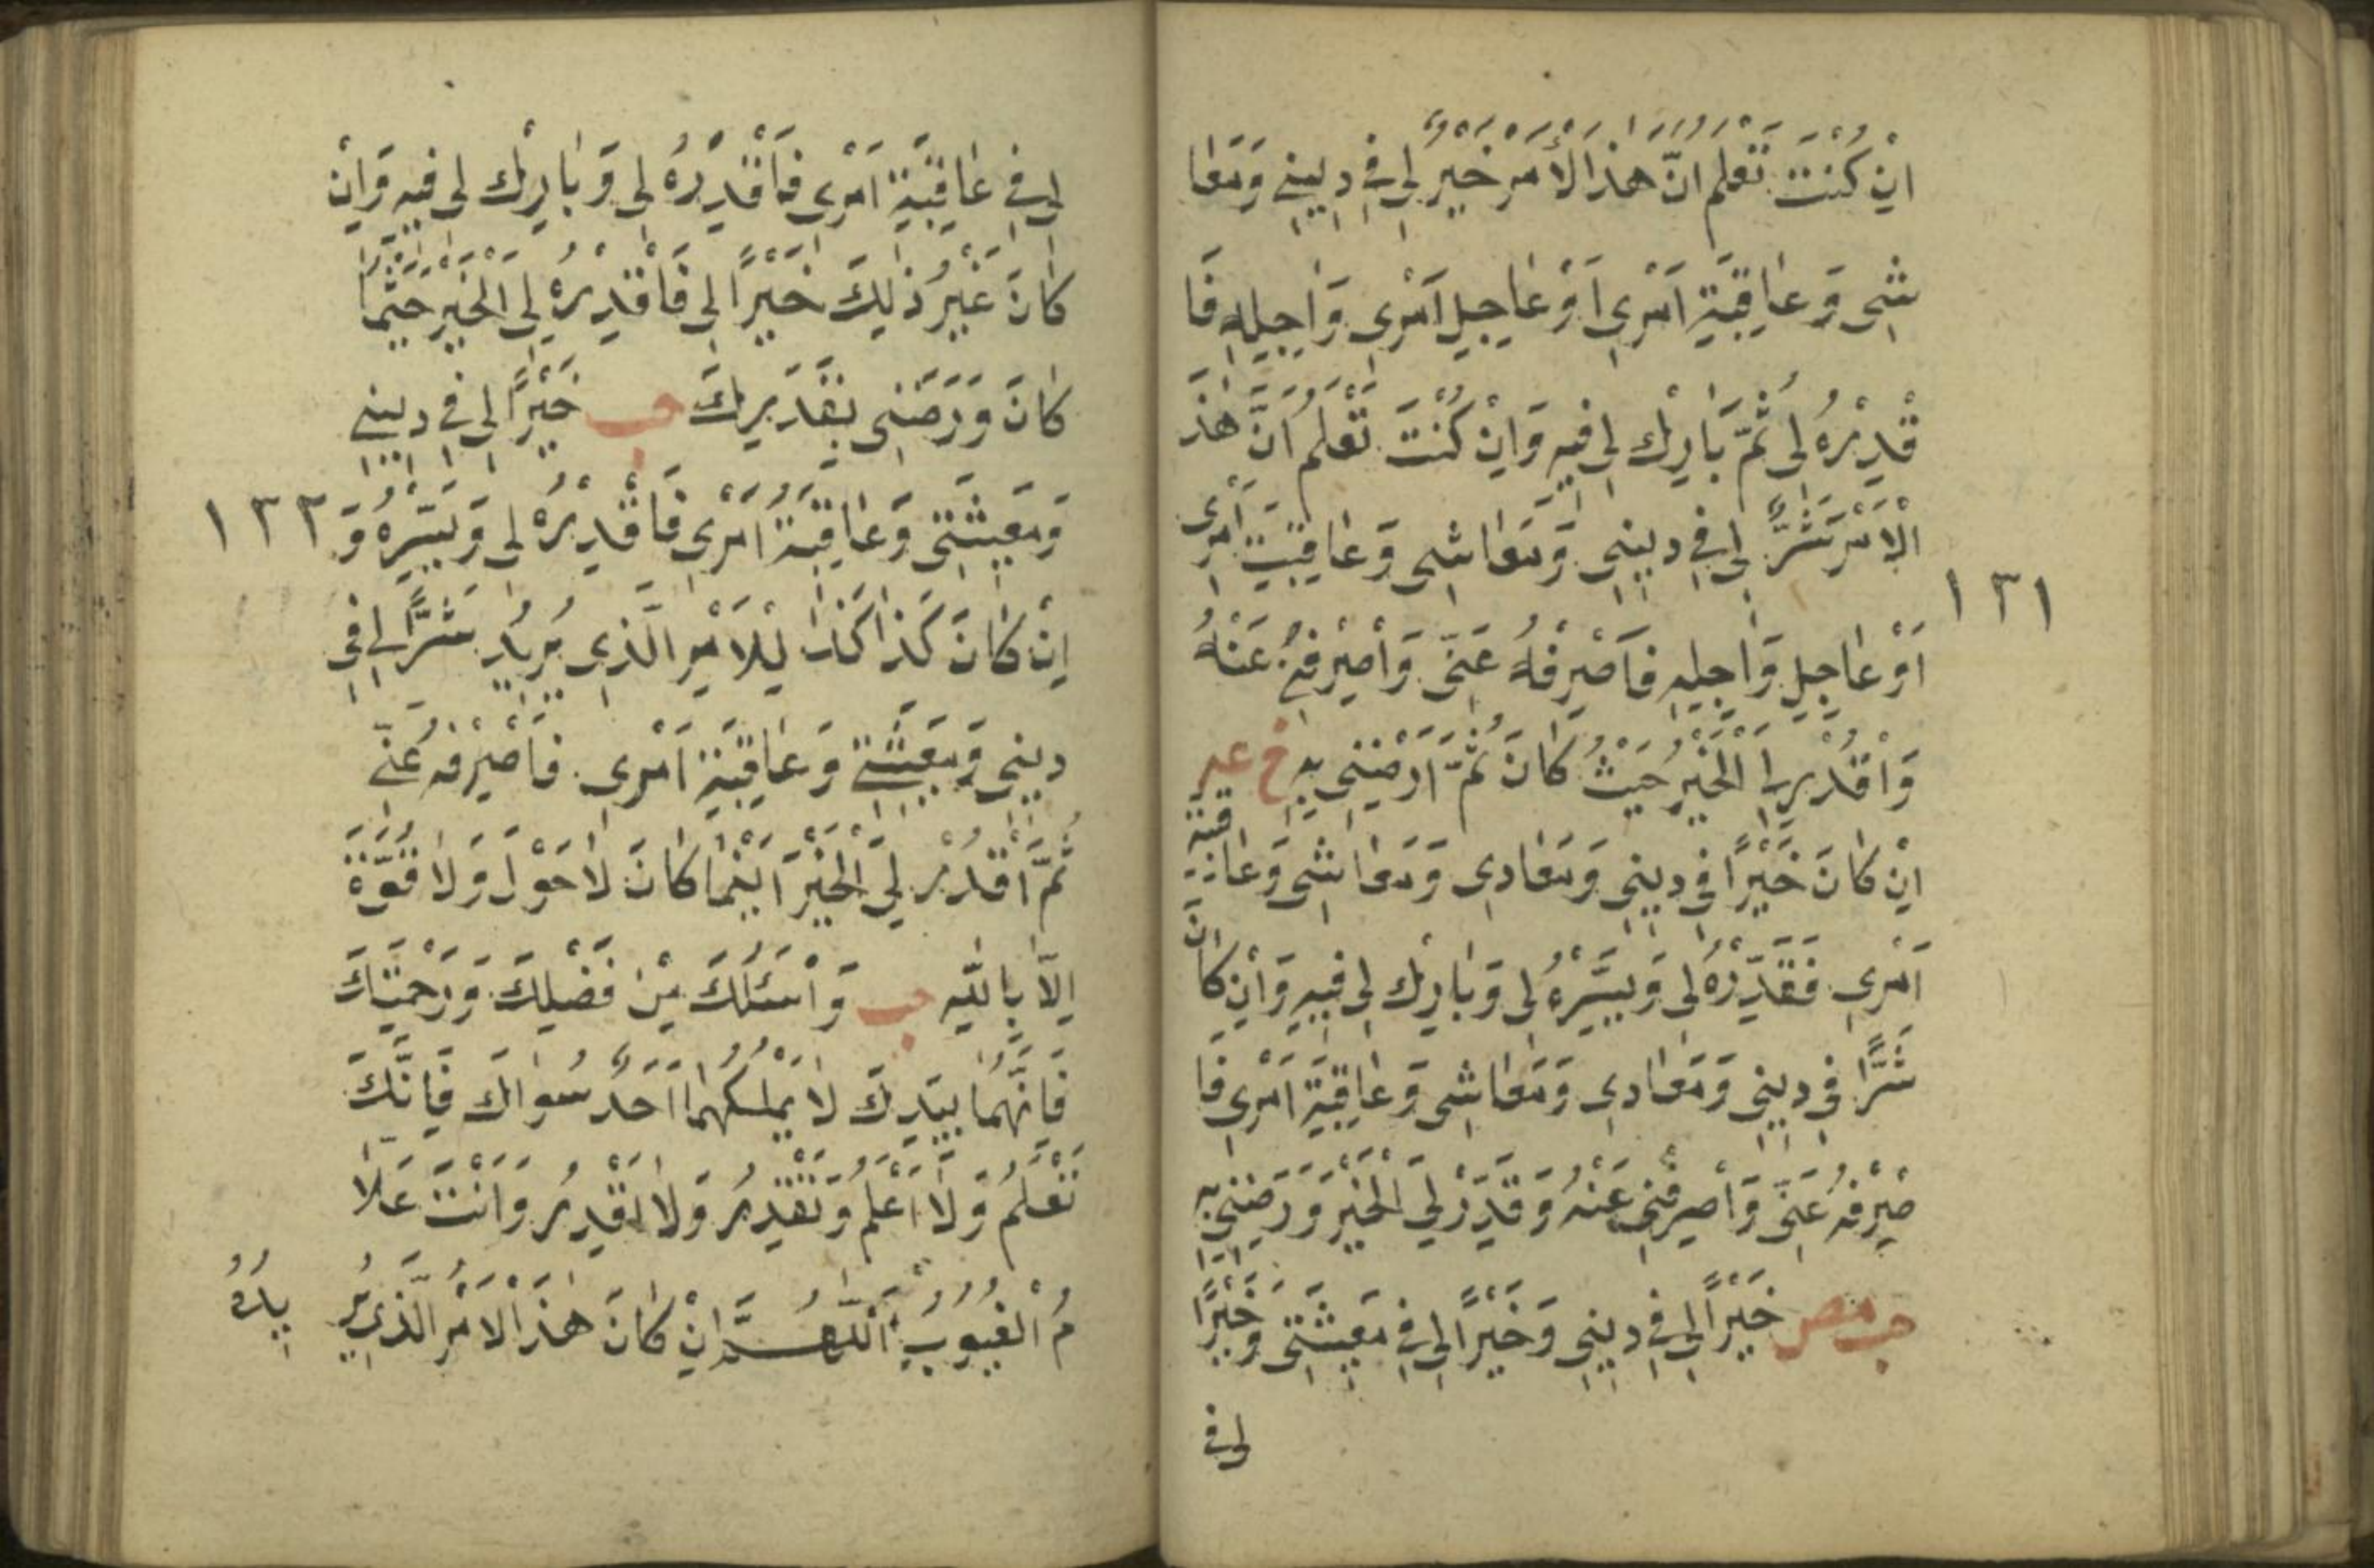 اِنْ كُنْتَ تَعْلَمُ اَنَّ هٰذَا الْأَمْرَ خَيْرٌ لِي فِي دِينِي وَمَعَا
شِي وَعَاقِبَةِ اَمْرِي اَوْ عَاجِلِ اَمْرِي وَاٰجِلِهِ فَا
قْدِرْهُ لِي ثُمَّ بَارِكْ لِي فِيهِ وَاِنْ كُنْتَ تَعْلَمُ اَنَّ هٰذَ
الْاَمْرَ شَرٌّ لِي فِي دِينِي وَمَعَاشِي وَعَاقِبَتِ اَمْرِي
١٣١
اَوْ عَاجِلِ وَاٰجِلِهِ فَاصْرِفْهُ عَنِّي وَاصْرِفْنِي عَنْهُ
وَاقْدُرْ لِيَ الْخَيْرَ حَيْثُ كَانَ ثُمَّ اَرْضِنِي بِهِ خ عه
اِنْ كَانَ خَيْرًا فِي دِينِي وَمَعَادِي وَمَعَاشِي وَعَاقِبَةِ
اَمْرِي فَقَدِّرْهُ لِي وَيَسِّرْهُ لِي وَبَارِكْ لِي فِيهِ وَاِنْ كَانَ
شَرًّا فِي دِينِي وَمَعَادِي وَمَعَاشِي وَعَاقِبَةِ اَمْرِي فَا
صْرِفْهُ عَنِّي وَاصْرِفْنِي عَنْهُ وَقَدِّرْ لِيَ الْخَيْرَ وَرَضِّنِي بِهِ
حب مص خَيْرًا لِي فِي دِينِي وَخَيْرًا لِي فِي مَعِيشَتِي وَخَيْرًا
لي في
لِي فِي عَاقِبَةِ اَمْرِي فَاقْدِرْهُ لِي وَبَارِكْ لِي فِيهِ وَاِنْ
كَانَ غَيْرُ ذٰلِكَ خَيْرًا لِي فَاقْدِرْهُ لِيَ الْخَيْرَ حَيْثُمَا
كَانَ وَرَضِّنِي بِقَدَرِكَ حب خَيْرًا لِي فِي دِينِي
وَمَعِيشَتِي وَعَاقِبَةُ اَمْرِي فَاقْدِرْهُ لِي وَيَسِّرْهُ وَ
١٣٢
اِنْ كَانَ كَذَا كَذَا لِلْاَمْرِ الَّذِي يُرِيدُ شَرًّا لِي فِي
دِينِي وَمَعِيشَتِي وَعَاقِبَةِ اَمْرِي فَاصْرِفْهُ عَنِّي
ثُمَّ اقْدُرْ لِيَ الْخَيْرَ اَيْنَمَا كَانَ لَا حَوْلَ وَلَا قُوَّةَ
اِلَّا بِاللّٰهِ حب وَاَسْئَلُكَ مِنْ فَضْلِكَ وَرَحْمَتِكَ
فَاِنَّهُمَا بِيَدِكَ لَا يَمْلِكُهُمَا اَحَدٌ سِوَاكَ فَاِنَّكَ
تَعْلَمُ وَلَا اَعْلَمُ وَتَقْدِرُ وَلَا اَقْدِرُ وَاَنْتَ عَلَّا
مُ الْغُيُوبِ اَللّٰهُمَّ اِنْ كَانَ هٰذَا الْاَمْرُ الَّذِي يُر
يدُهُ